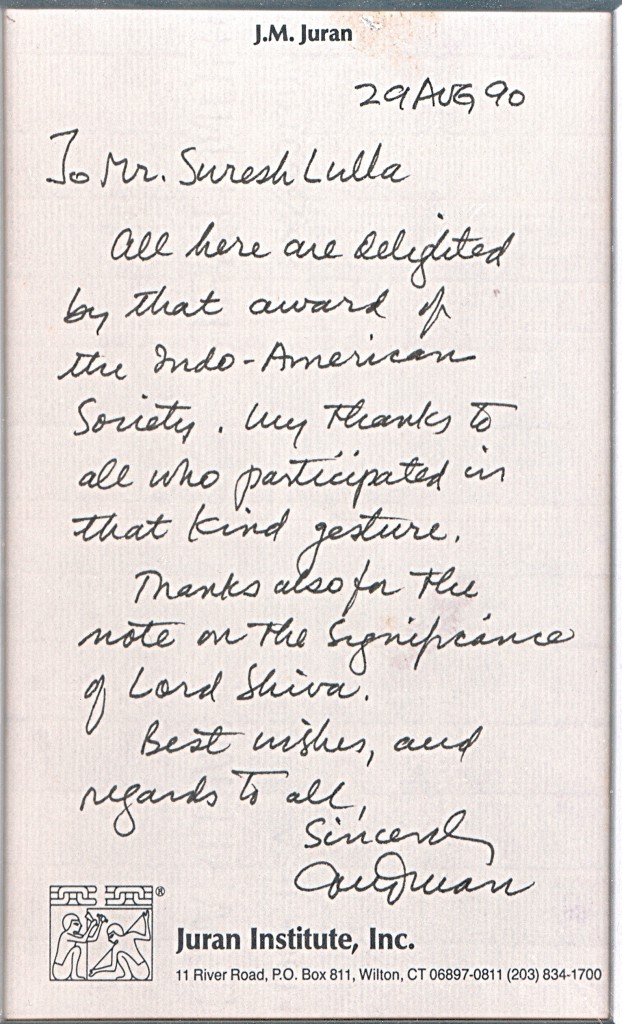 J.M. Juran
29 AUG 90
To Mr. Suresh Lulla
All here are delighted
by that award of
the Indo-American
Society. My thanks to
all who participated in
that kind gesture.
Thanks also for the
note on the significance
of Lord Shiva.
Best wishes, and
regards to all,
Sincerely
®
Juran Institute, Inc.
11 River Road, P.O. Box 811, Wilton, CT 06897-0811 (203) 834-1700